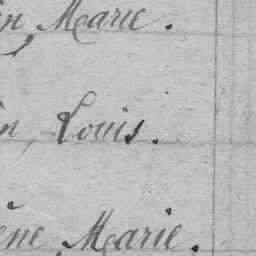 in, Marie.
in, Louis.
ène Marie.